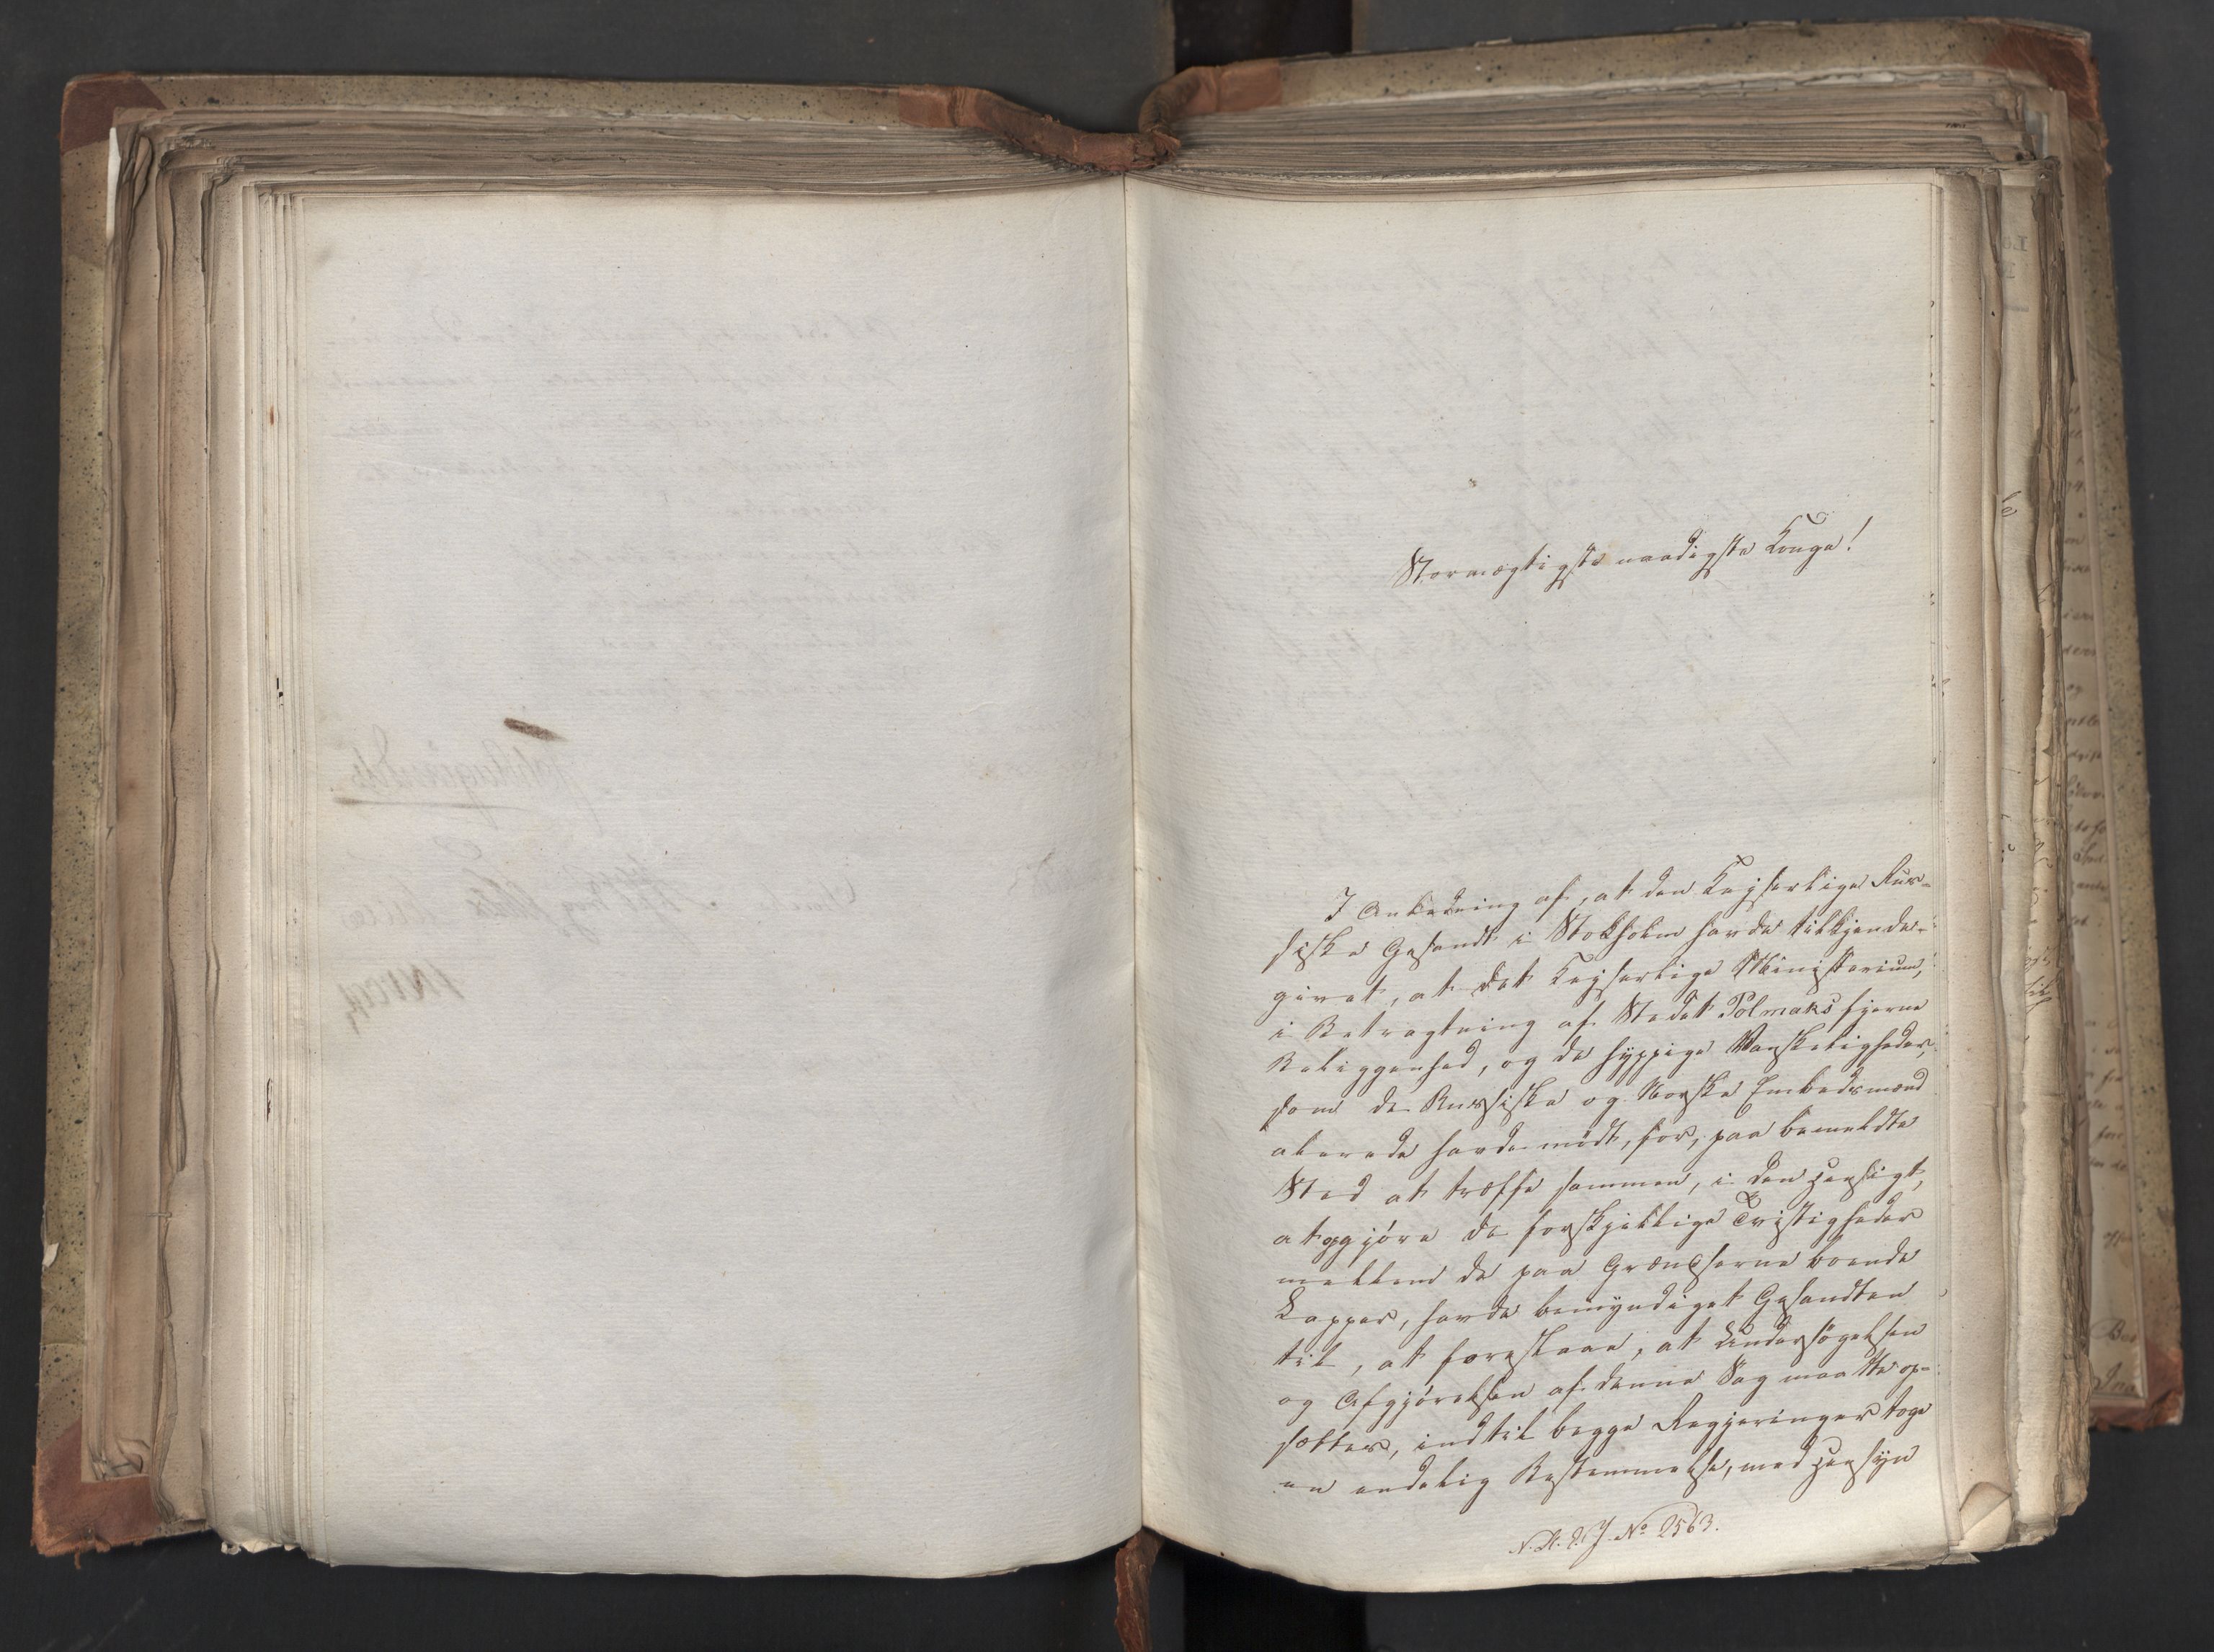 Stormægtigste naadigste Konge!
I Anledning af, at den Keyserlige Rus-
siske Gesandt i Stokholm havde tilkjende-
givet, at det Keyserlige Ministerium,
i Betragtning af Stedet Polmaks fjerne
Beliggenhed, og de hyppige Vanskeligheder,
som de Russiske og Norske Embedsmænd
allerede havde mødt, for, paa bemeldte
Sted at træffe sammen, i den Hensigt,
at opgjøre de forskjellige Tvistigheder
mellem de paa Grændserne boende
Lapper, havde bemyndiget Gesandten
til, at foreslaae, at Undersøgelsen
og Afgjørelsen af denne Sag maatte op-
sættes, indtil begge Regjeringer toge
en endelig Bestemmelse, med Hensyn
No 2563.